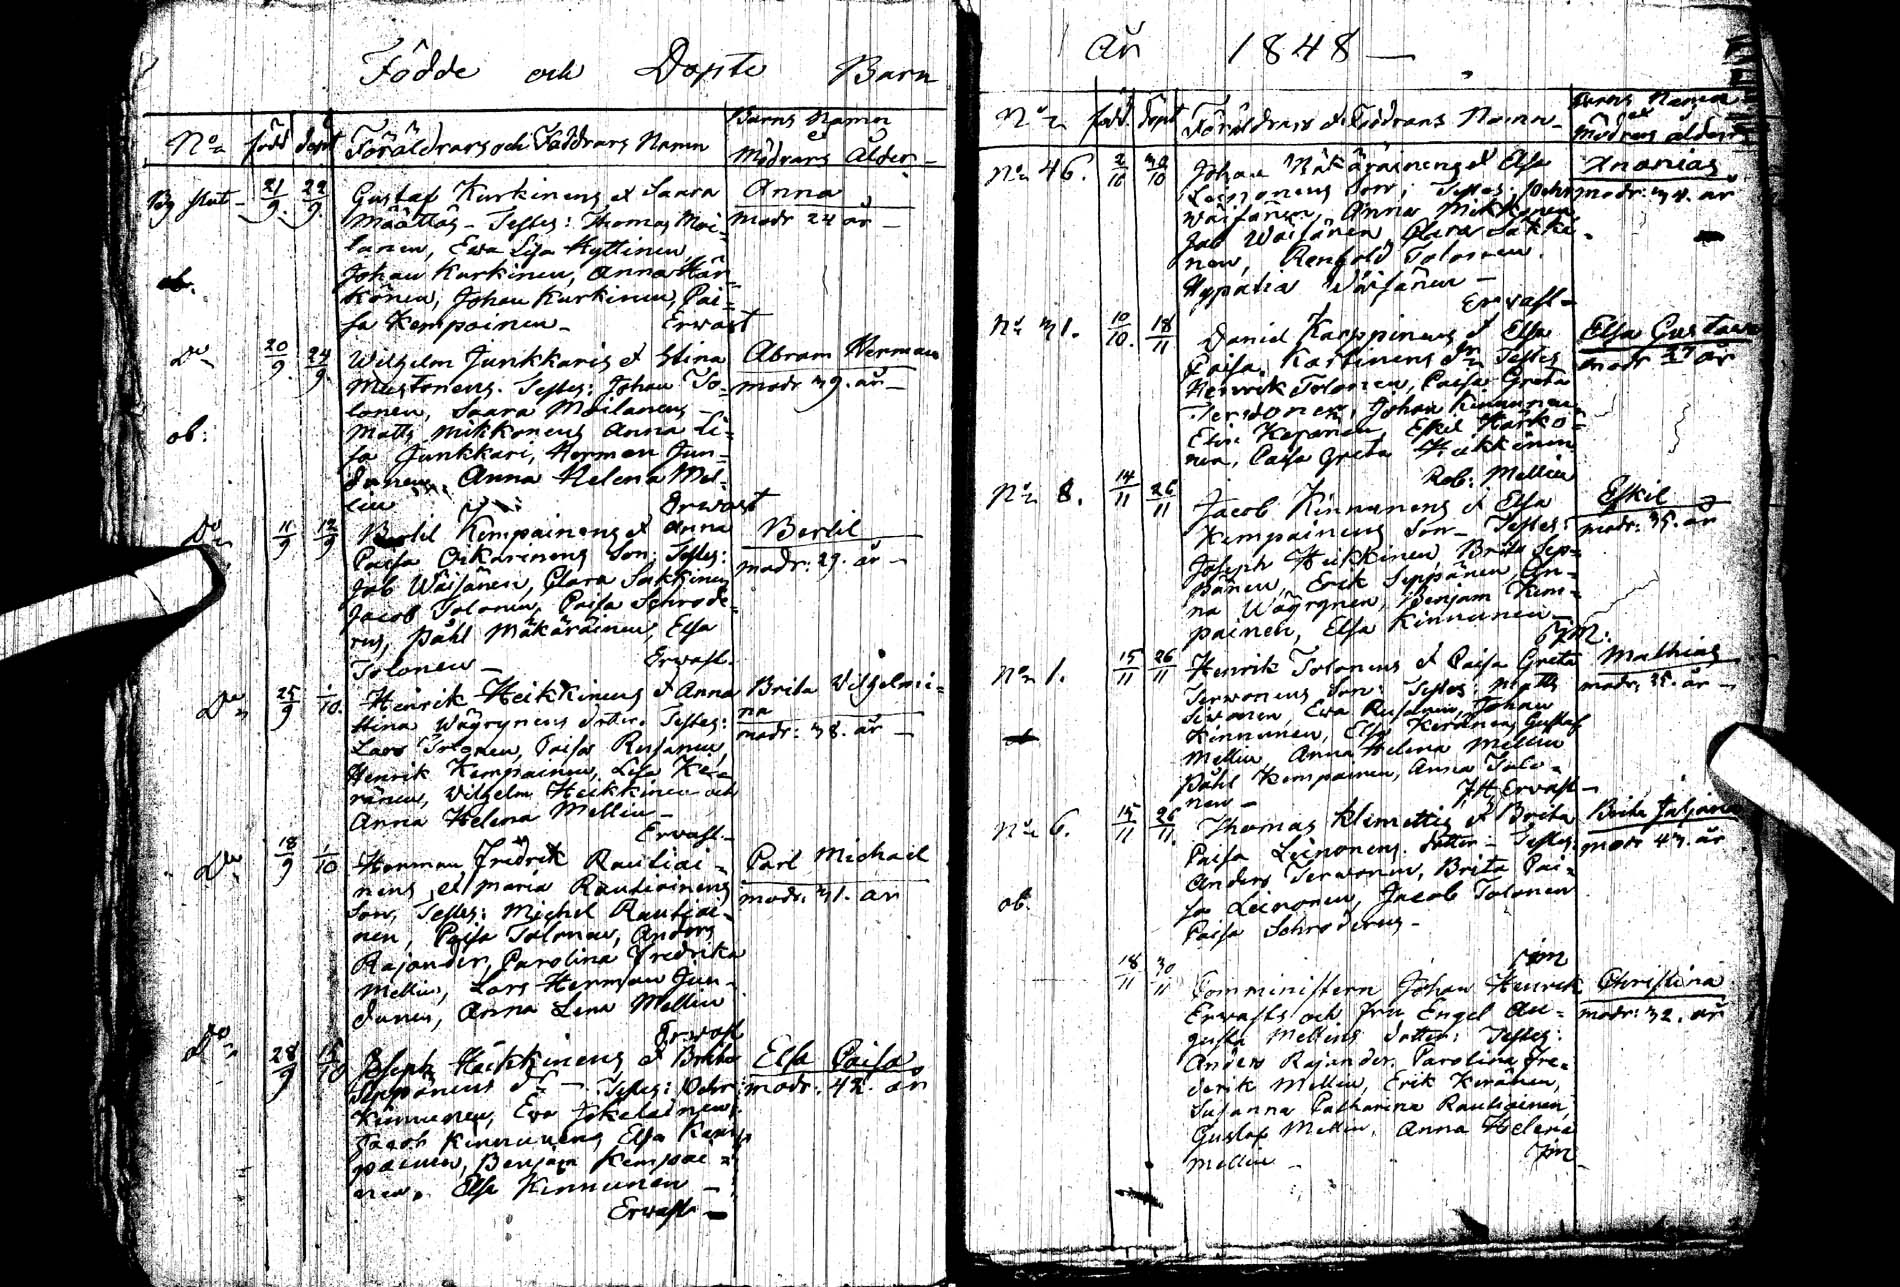 Födde och Döpte Barn
No född döpt Föräldrars och Faddrars Namn
Barns Namn
et
Mödrars Ålder
21/9 22/9 Gustaf Kurkinens et Saara
Määttäs - Testes: Thomas Moi-
lanen, Ewa Lisa Hyttinen
Johan Kurkinen, Anna Här-
könen, Johan Kurkinen, Cai-
sa Kempainen - Erwast
Anna
modr 24 år -
ob.
Do 20/9 24/9 Wilhelm Junkkaris et Stina
Mustonens. Testes: Johan To-
lonen, Saara Moilanens
Matts Mikkonens Anna Li-
sa Junkkari, Herman Jun-
dunen, Anna Helena Mel-
lin Erwast
Abram Herman
modr 39. år -
ob:
Do 11/9 12/9 Bertil Kempainens et Anna
Caisa Oikarinens Son: Testes:
Job Wäisänen, Clara Sakkinen
Jacob Tolonen, Caisa Schrode-
rus, Påhl Mäkäräinen, Elsa
Tolonen - Erwast.
Bertil
modr: 29. år -
Do 25/9 1/10. Henrik Heikkinens et Anna
Stina Wäyrynens dotter. Testes:
Lars Tolonen, Caisa Rusanen,
Henrik Kempainen, Lisa Ke-
ränen, Wilhelm Heikkinen och
Anna Helena Mellin -
Erwast -
Brita Vilhelmi-
na
modr: 38. år -
Do 18/9 1/10 Herman Fredrik Rautiai-
nens et Maria Rautiainens
Son, Testes: Michel Rautiai-
nen, Caisa Tolonen, Anders
Rajander, Carolina Fredrika
Mellin, Lars Herman Jun-
dunen, Anna Lena Mellin
Erwast
Carl Michael
modr. 31. år
Do 28/9 15/10 Joseph Häikkinens et Britha
Seppänens dr - Testes:
Kinnunen, Ewa Jokelainen,
Jacob Kinnunens Elsa Kem-
painen, Benjam Kempai-
nen. Elsa Kinnunen -
Erwast -
Elsa Caisa
modr: 42. år
År 1848 -
No född. döpt Föräldrars et Faddrars Namn -
Barns Namn
et
Mödrars ålder
No 46. 2/10 30/10 Johan Mäkäräinens et Elsa
Leinonens Son; Testes:
Wäisänen, Anna Mikkonen,
Job Wäisänen, Clara Sakki-
nen, Renhold Tolonen.
Hypatia Wäisänen -
Erwast -
Ananias
modr: 34. år
No 31. 10/10. 18/11 Daniel Karppinens et Elsa
Caisa Kastinens dr Testes
Henrik Tolonen, Caisa Greta
Terwonen, Johan Kinnunen
Elin Keränen, Eskil Härkö-
nen, Caisa Greta Heikkinen
Rob: Mellin
Elsa Gustawa
modr 27 år
No 8. 14/11 26/11 Jacob Kinnunens et Elsa
Kempainens Son - Testes:
Joseph Heikkinen, Brita Sep-
pänen, Erik Seppänen An-
na Wäyrynen, Benjam Kem-
painen, Elsa Kinnunen -
Eskil
modr: 35. år
No 1. 15/11 26/11 Henrik Tolonens et Caisa Greta
Terwonens Son: Testes: Matts
Siwonen, Ewa Rusanen, Johan
Kinnunen, Elsa Keränen, Gustaf
Mellin, Anna Helena Mellin
Påhl Kempainen, Anna Tolo-
nen - JH Erwast -
Mathias
modr: 25. år -
No 6. 15/11 26/11. Thomas Klemettis et Brita
Caisa Leinonens. dotter - Testes:
Anders Terwonen, Brita Cai-
sa Leinonen, Jacob Tolonen
Caisa Schroderus -
modr 43. år
ob.
18/11 30/11 Comministern Johan Henrik
Erwasts och Fru Engel Au-
gusta Mellins dotter: Testes:
Anders Rajander. Carolina Fre-
derik Mellin, Erik Keränen,
Susanna Catharina Rautiainen,
Gustaf Mellin. Anna Helena
Mellin -
Christina
modr: 32. år